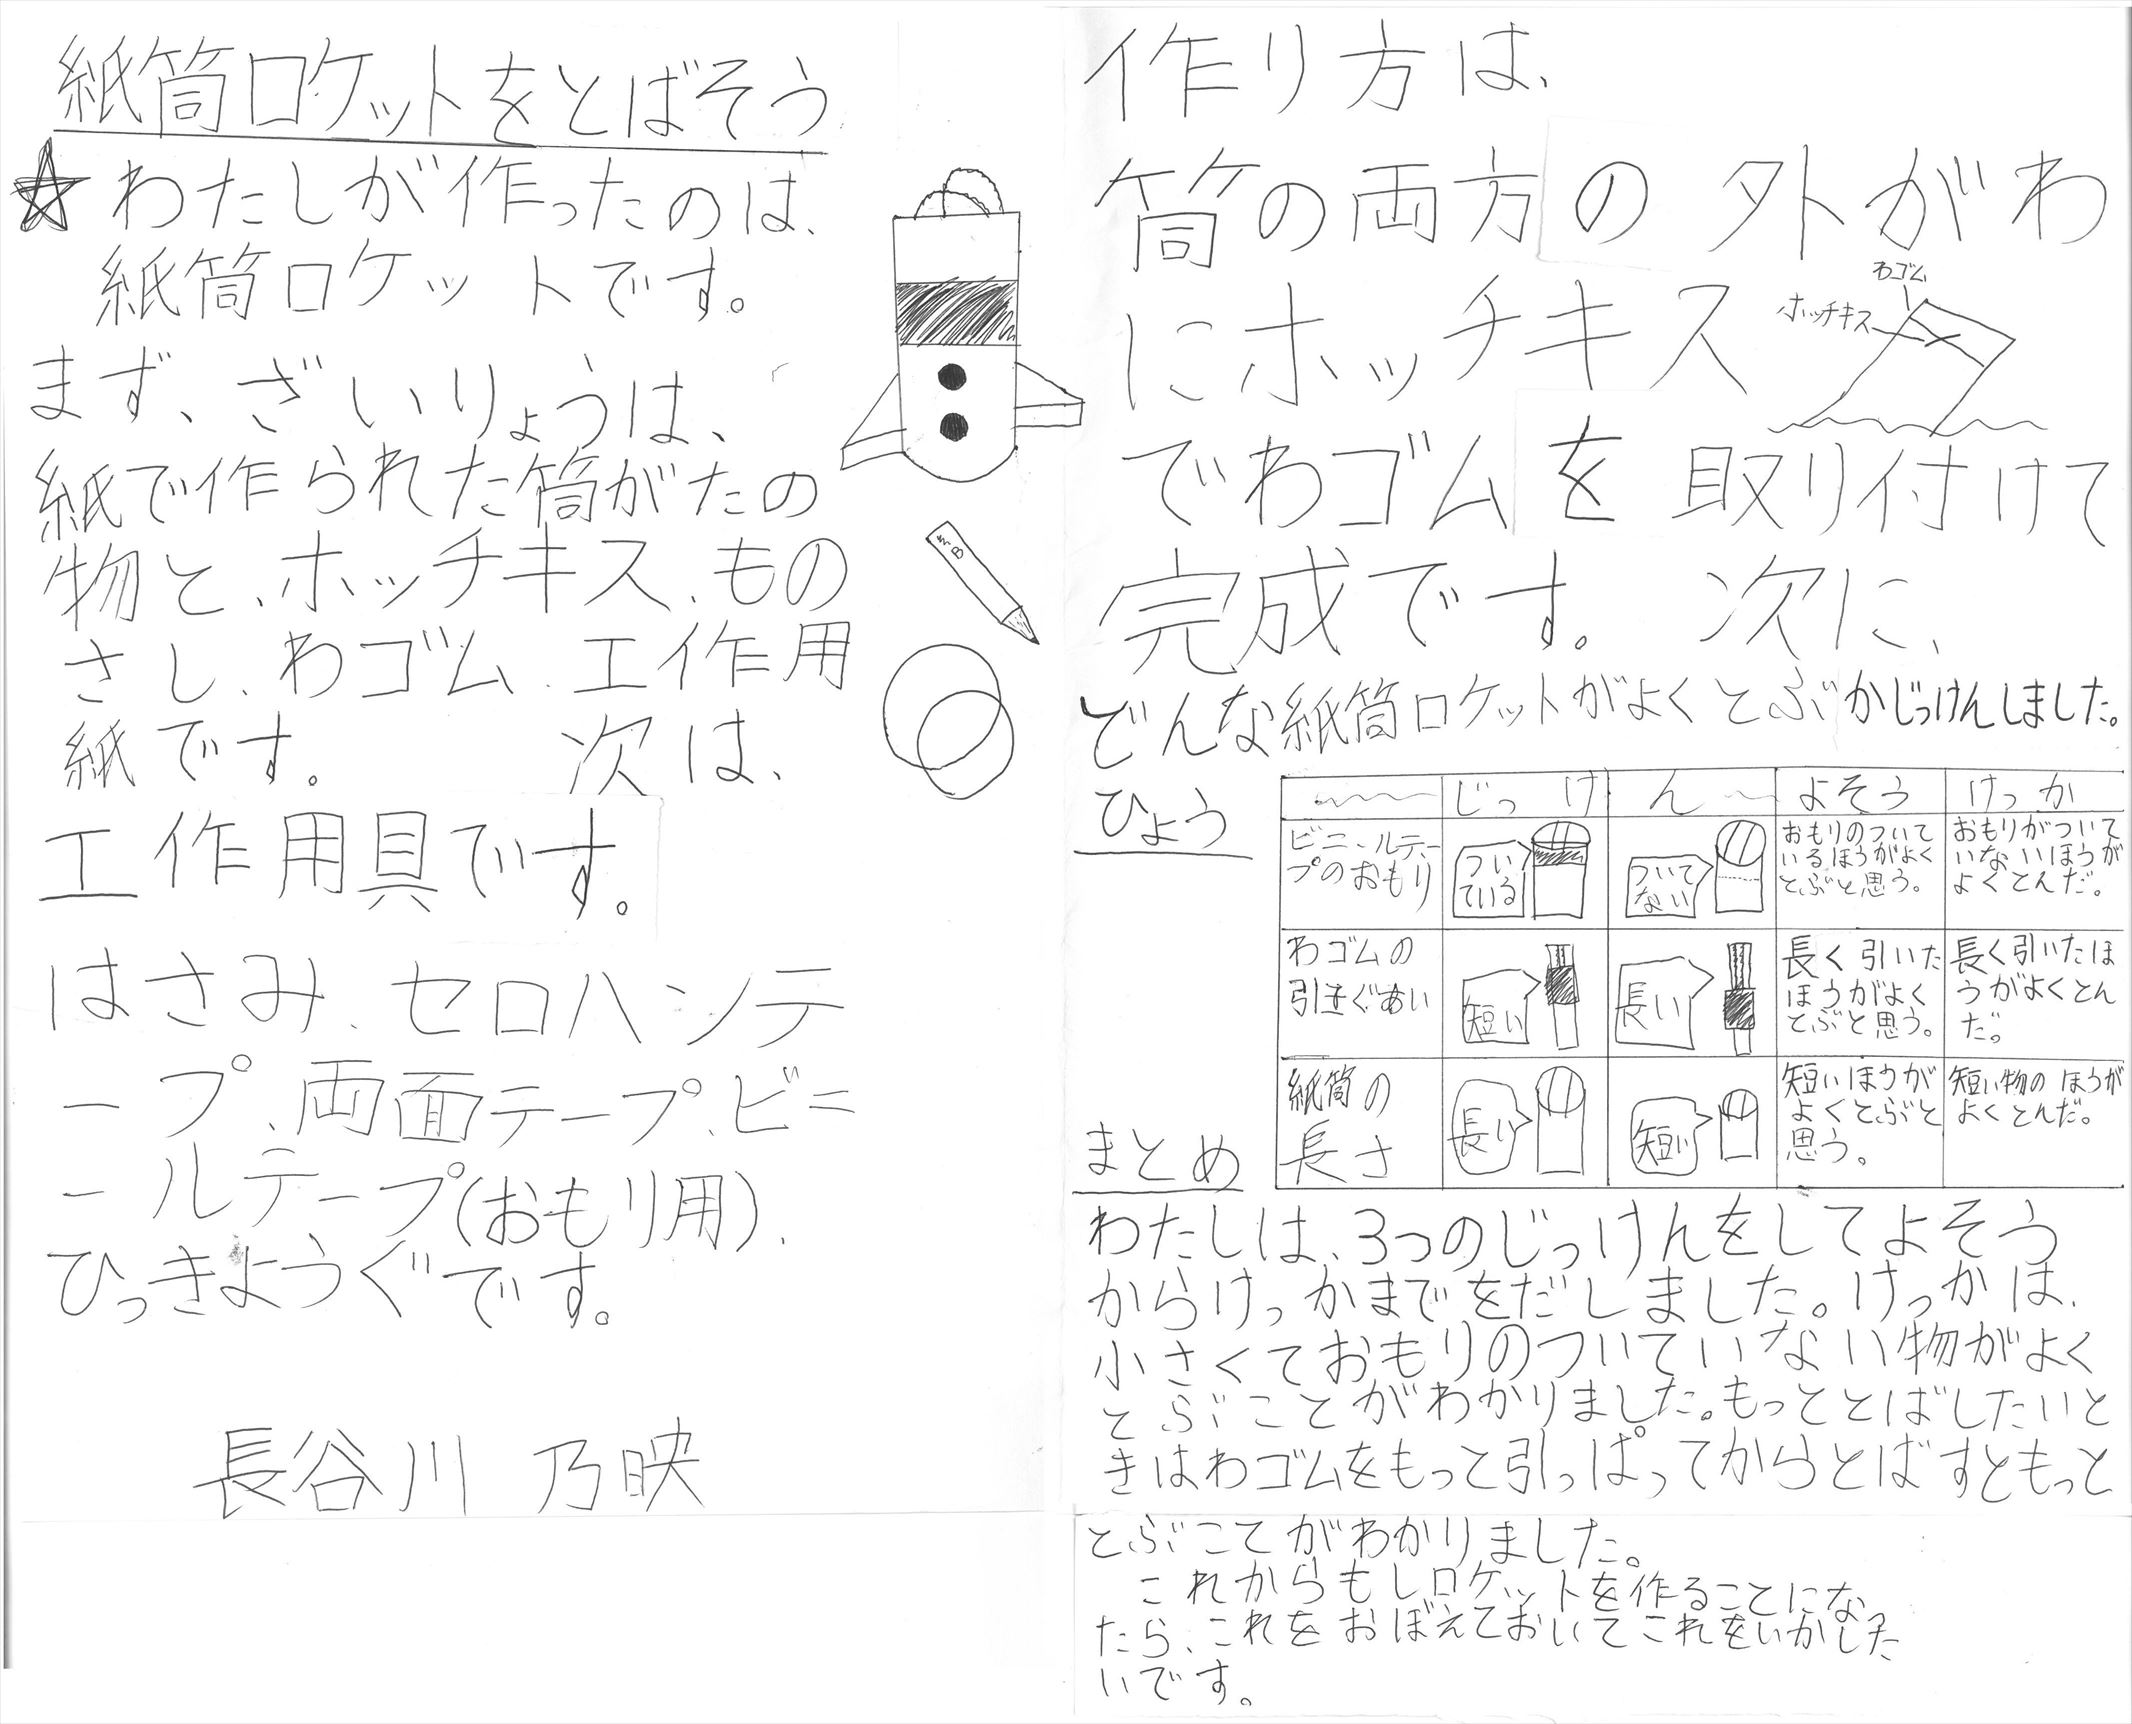 紙筒ロケットをとばそう
☆わたしが作ったのは、
紙筒ロケットです。
まず、ざいりょうは、
紙で作られた筒がたの
物と、ホッチキス、もの
さし、わゴム、工作用
紙です。 次は、
工作用具です。
はさみ、セロハンテ
ープ、両面テープ、ビニ
ールテープ(おもり用)、
ひっきようぐです。
長谷川 乃映
B
作り方は、
筒の両方の外がわ
にホッチキス
でわゴムを取り付けて
完成です。 次に、
わゴム
ホッチキス
どんな紙筒ロケットがよくとぶかじっけんしました。
ひょう
じっけん よそう けっか
ビニールテープのおもり
ついている
ついてない
おもりのついて
いるほうがよく
とぶと思う。
おもりがついて
いないほうが
よくとんだ。
わゴムの
引きぐあい
短い
長い
長く引いた
ほうがよく
とぶと思う。
長く引いたほ
うがよくとん
だ。
紙筒の
長さ
長い
短い
短いほうが
よくとぶと
思う。
短い物のほうが
よくとんだ。
まとめ
わたしは、3つのじっけんをしてよそう
からけっかまでをだしました。けっかは、
小さくておもりのついていない物がよく
とぶことがわかりました。もっととばしたいと
きはわゴムをもっと引っぱってからとばすともっと
とぶこてがわかりました。
これからもしロケットを作ることになっ
たら、これをおぼえておいてこれをいかした
いです。